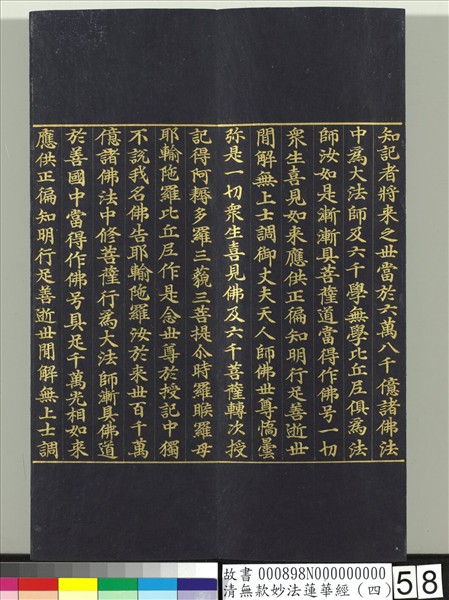 知記者將来之世當於六萬八千億諸佛法
中爲大法師及六千學無學比丘尼俱爲法
師汝如是漸漸具菩薩道當得作佛号一切
衆生喜見如来應供正徧知明行足善逝世
間解無上士調御丈夫天人師佛世尊憍曇
弥是一切衆生喜見佛及六千菩薩轉次授
記得阿耨多羅三藐三菩提尒時羅睺羅母
耶輸陁羅比丘尼作是念世尊於授記中獨
不說我名佛告耶輸陁羅汝於来世百千萬
億諸佛法中修菩薩行爲大法師漸具佛道
於善國中當得作佛号具足千萬光相如来
應供正徧知明行足善逝世間解無上士調
故書 000898N000000000
清無款妙法蓮華經（四）
58